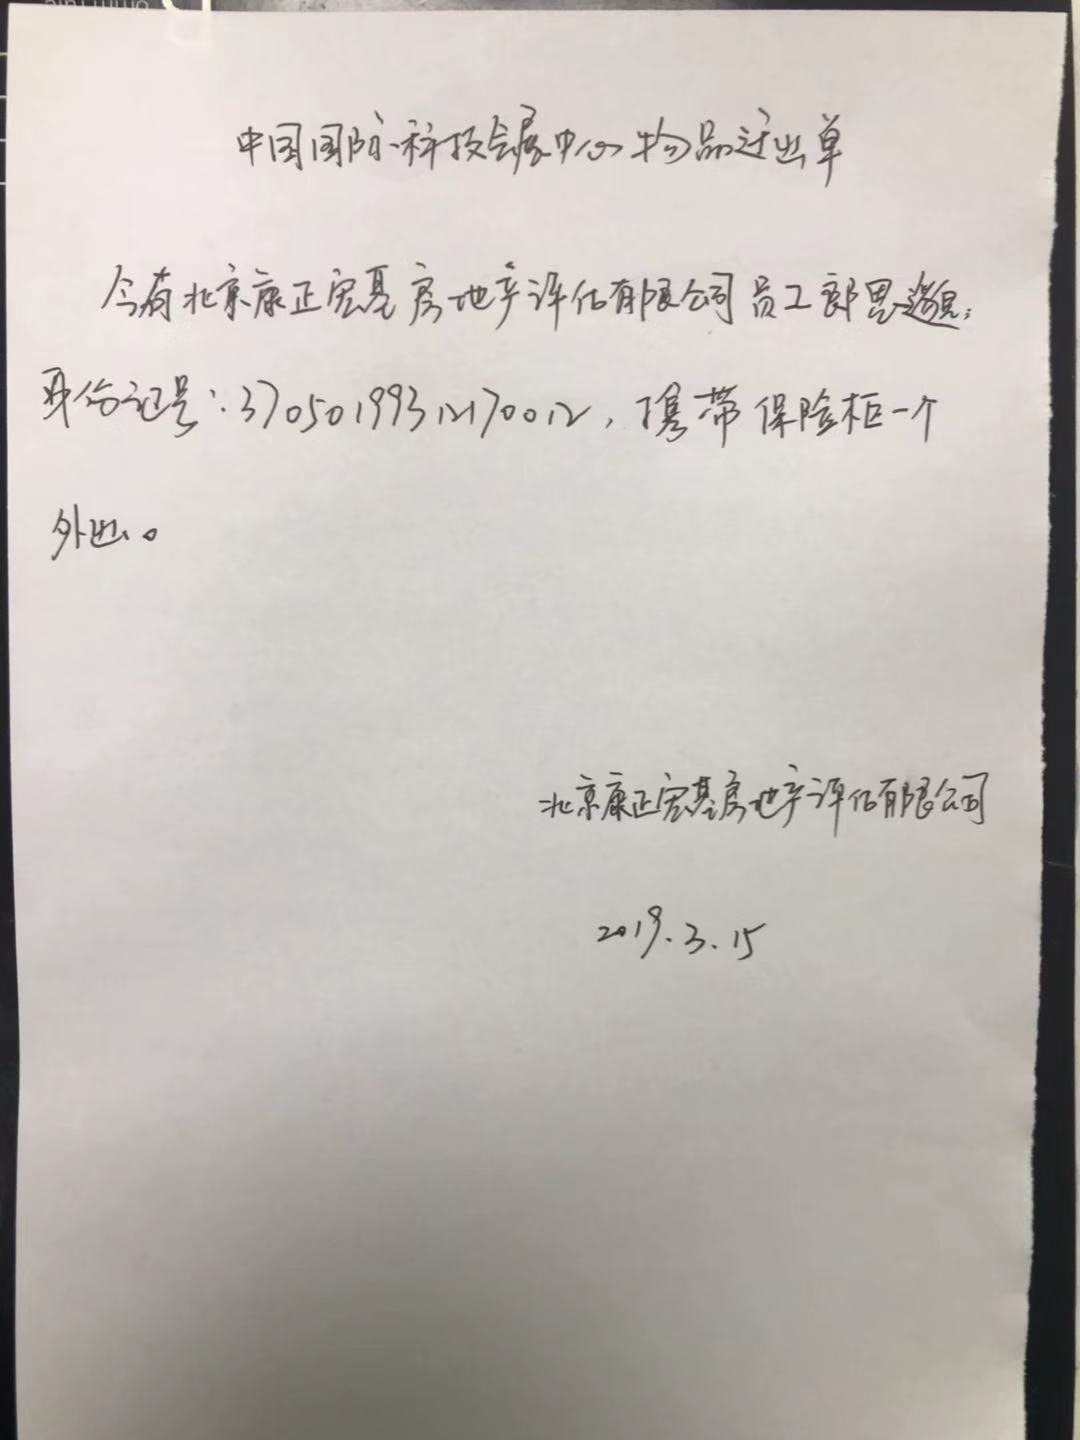 中国国际科技会展中心物品迁出单
今有北京康正宏基房地产评估有限公司员工郎思邈,
身份证号:37050199312170012,携带保险柜一个
外出。
北京康正宏基房地产评估有限公司
2019.3.15